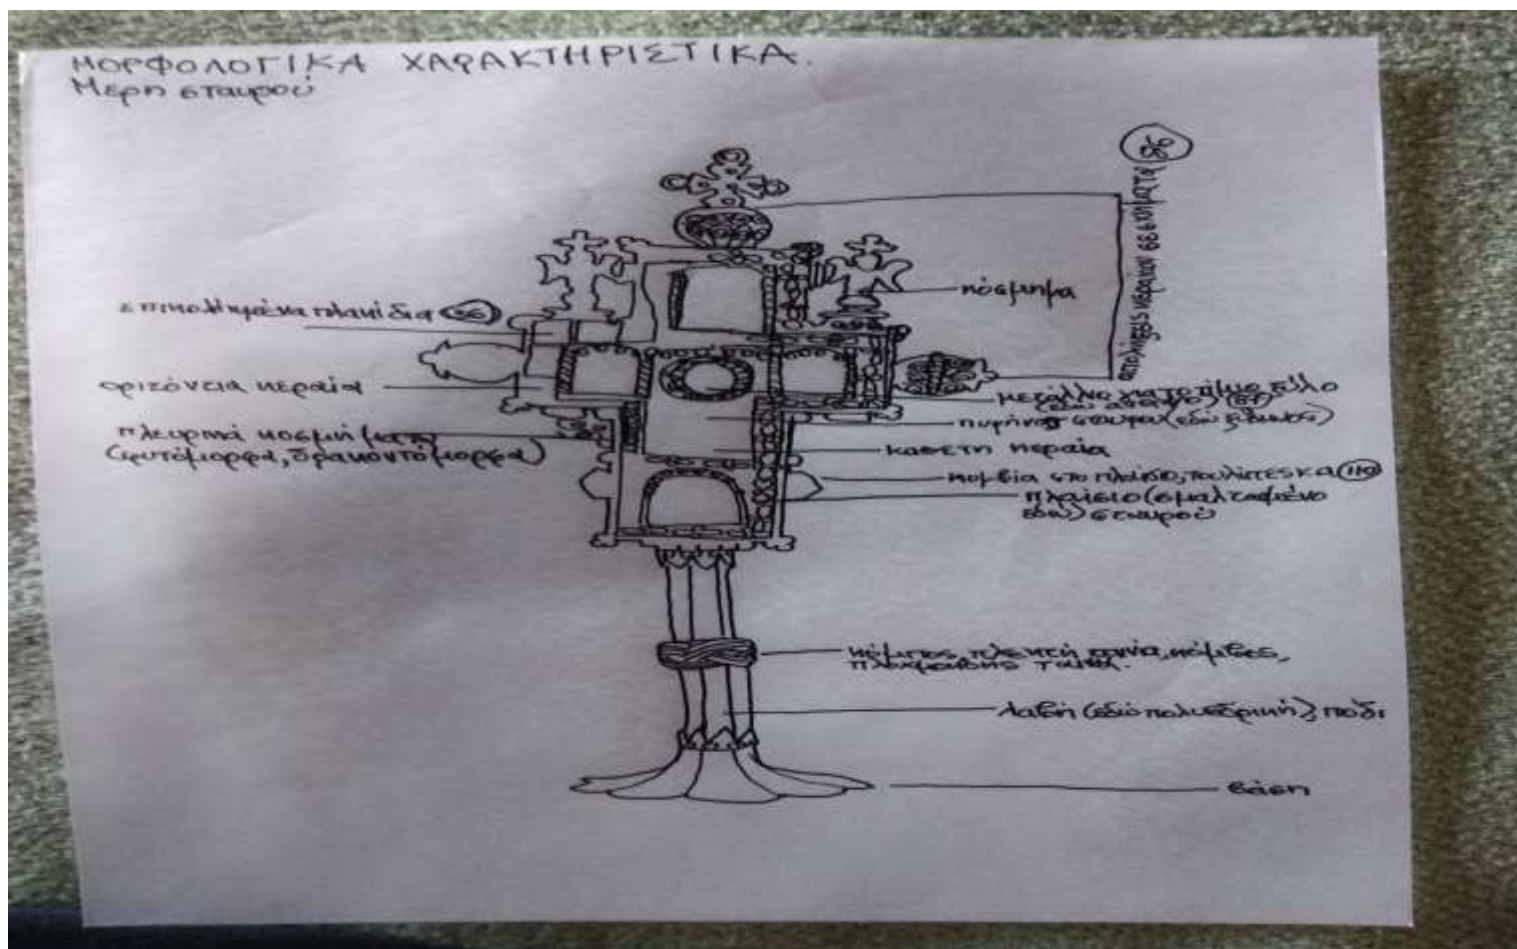 ΜΟΡΦΟΛΟΓΙΚΑ ΧΑΡΑΚΤΗΡΙΣΤΙΚΑ.
Μερη σταυρού
επικολλημένα πλακίδια
οριζόντια κεραία
πλευρικά κοσμήματα
(φυτόμορφα, δρακοντόμορφα)
απολήξεις κεραιών
κόσμημα
μετάλλιο για το τίμιο ξύλο
πυρήνας σταυρού (εδώ ξύλινος)
κάθετη κεραία
κομβία στο πλαίσιο, τουλίπες κ.α 110
πλαίσιο (σμαλτωμένο
εδώ) σταυρού
κόμπος, πλεκτή ταινία, κόμβος,
ταινία.
λαβή (εδώ πολυεδρική), πόδι
βάση